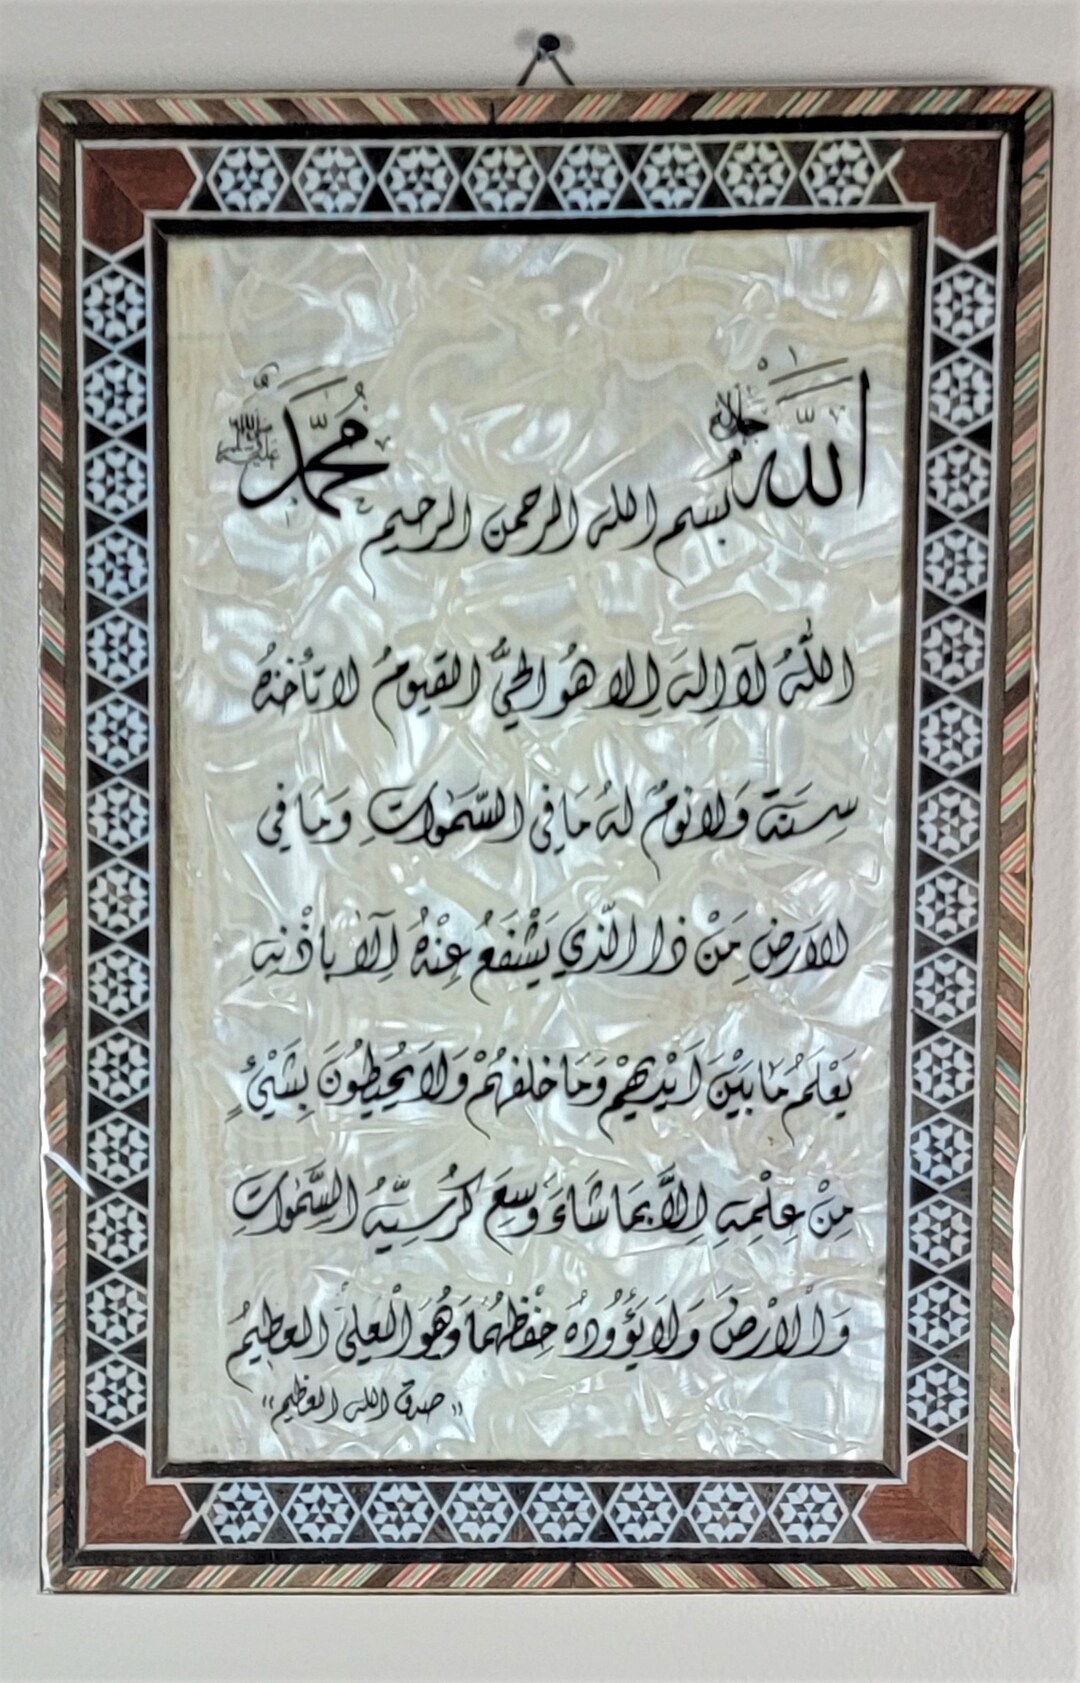 الله جل جلاله
محمد صلى الله عليه وسلم
بسم الله الرحمن الرحيم
اللّٰهُ لَآ اِلٰهَ اِلا هُو الحيُّ القيومُ لا تأخذهُ
سِنَة وَلا نومٌ لهُ مَا في السَّمٰواتِ وَمَا في
الارضِ مَنْ ذا الَّذي يَشْفَعُ عِنْدهُ اِلّا باذْنهِ
يَعْلَمُ مَا بَيْنَ اَيْديهِمْ وَمَا خلفهُمْ وَلَا يُحيطُونَ بِشَيْءٍ
مِنْ عِلْمِهِ اِلَّا بمَا شَاءَ وَسِعَ كُرْسِيُّهُ السَّمٰواتِ
وَالْارْضَ وَلَا يَؤُودُهُ حِفْظهُمَا وَهُوَ الْعَليُّ العظيمُ
"صدق الله العظيم"